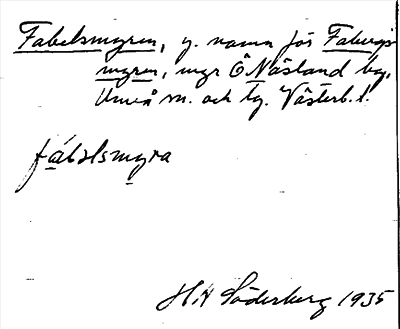 Fabelsmyren, y. namn för Fabergs
myren, myr Ö Näsland by,
Umeå sn. och tg. Västerb. l.
fábəlsmyra
H. N Söderberg 1935